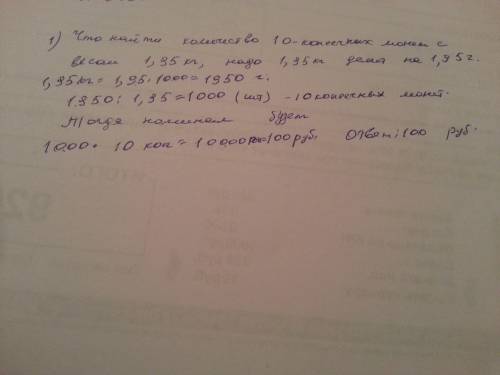 1) Что найти количество 10-копеечных монет с
весом 1,95 кг, надо 1,95 кг делит на 1,95 г.
1,95 кг = 1,95 · 1000 = 1950 г.
1950 : 1,95 = 1000 (шт) - 10 копеечных монет.
Тогда номинал будет
1000 · 10 коп = 10000 к = 100 руб. Ответ: 100 руб.